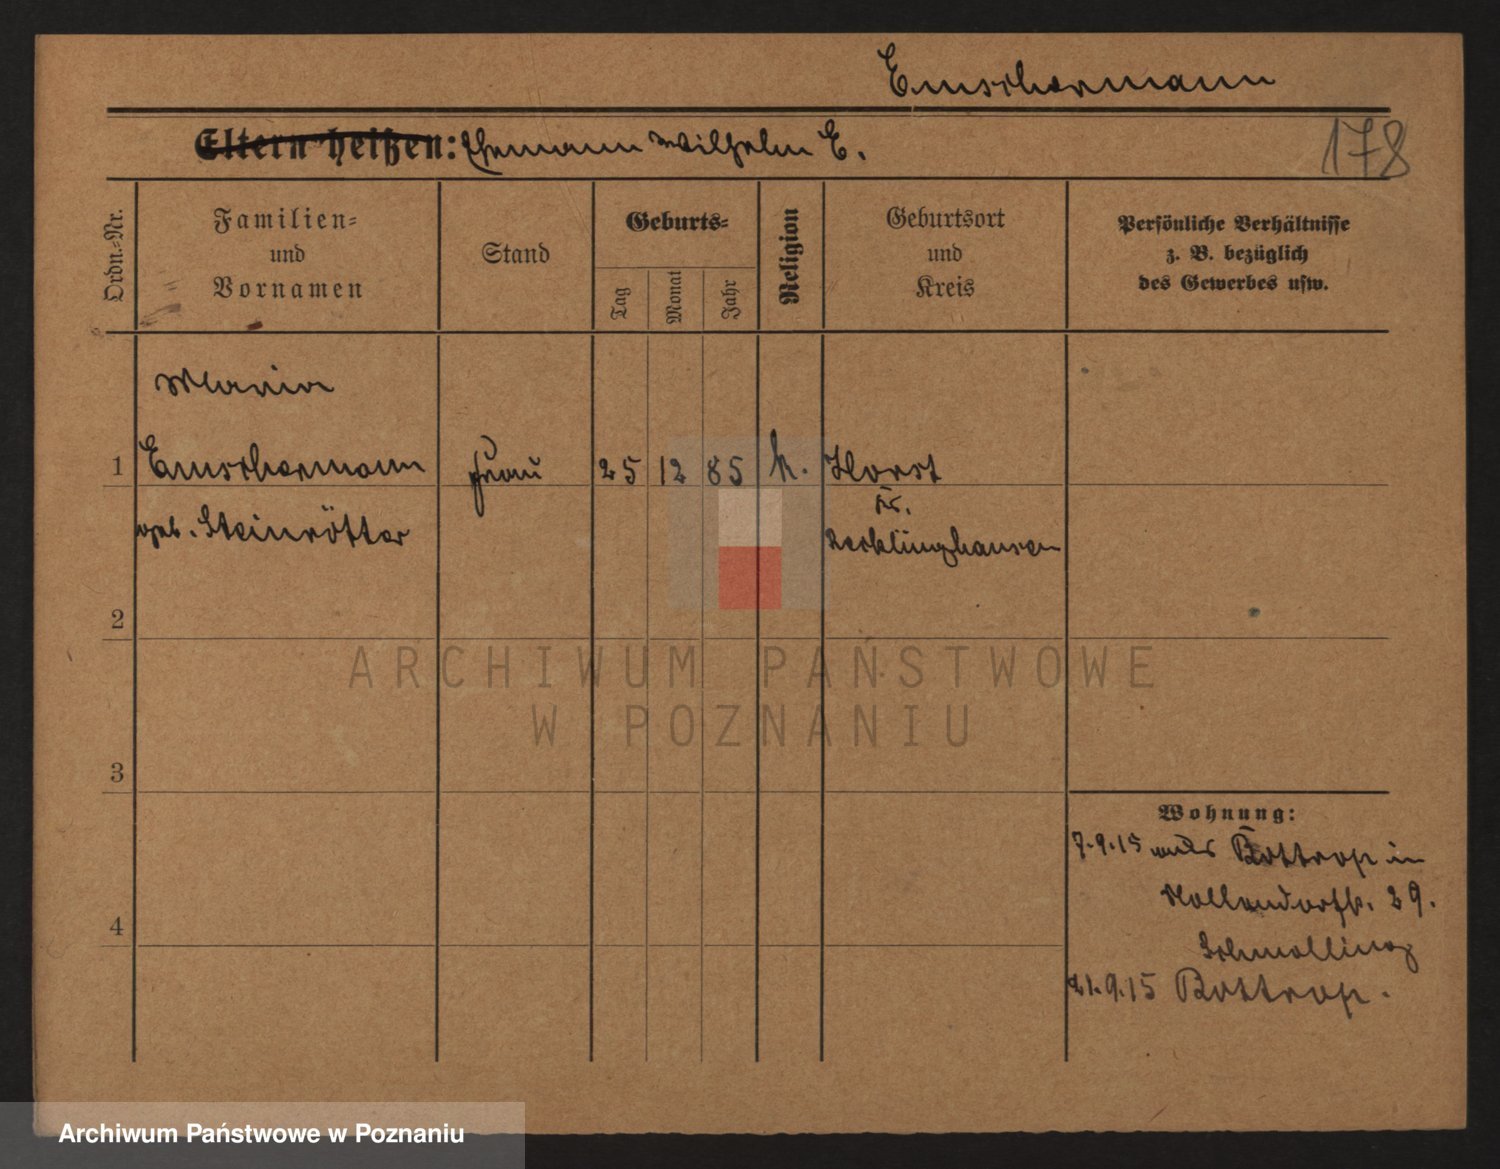 Emschermann
Eltern heißen: Ehemann Wilhelm E.
178
Ordn.=Nr.
Familien=
und
Vornamen
Stand
Geburts=
Tag
Monat
Jahr
Religion
Geburtsort
und
Kreis
Persönliche Verhältnisse
z. B. bezüglich
des Gewerbes usw.
Maria
1 Emschermann Frau 25 12 85 k. Horst
Kr.
geb. Steinrötter Recklinghausen
2
3
4
Wohnung:
7.9.15 aus Bottrop in
29.
Schmolling
21.9.15 Bottrop.
ARCHIWUM PAŃSTWOWE
W POZNANIU
Archiwum Państwowe w Poznaniu